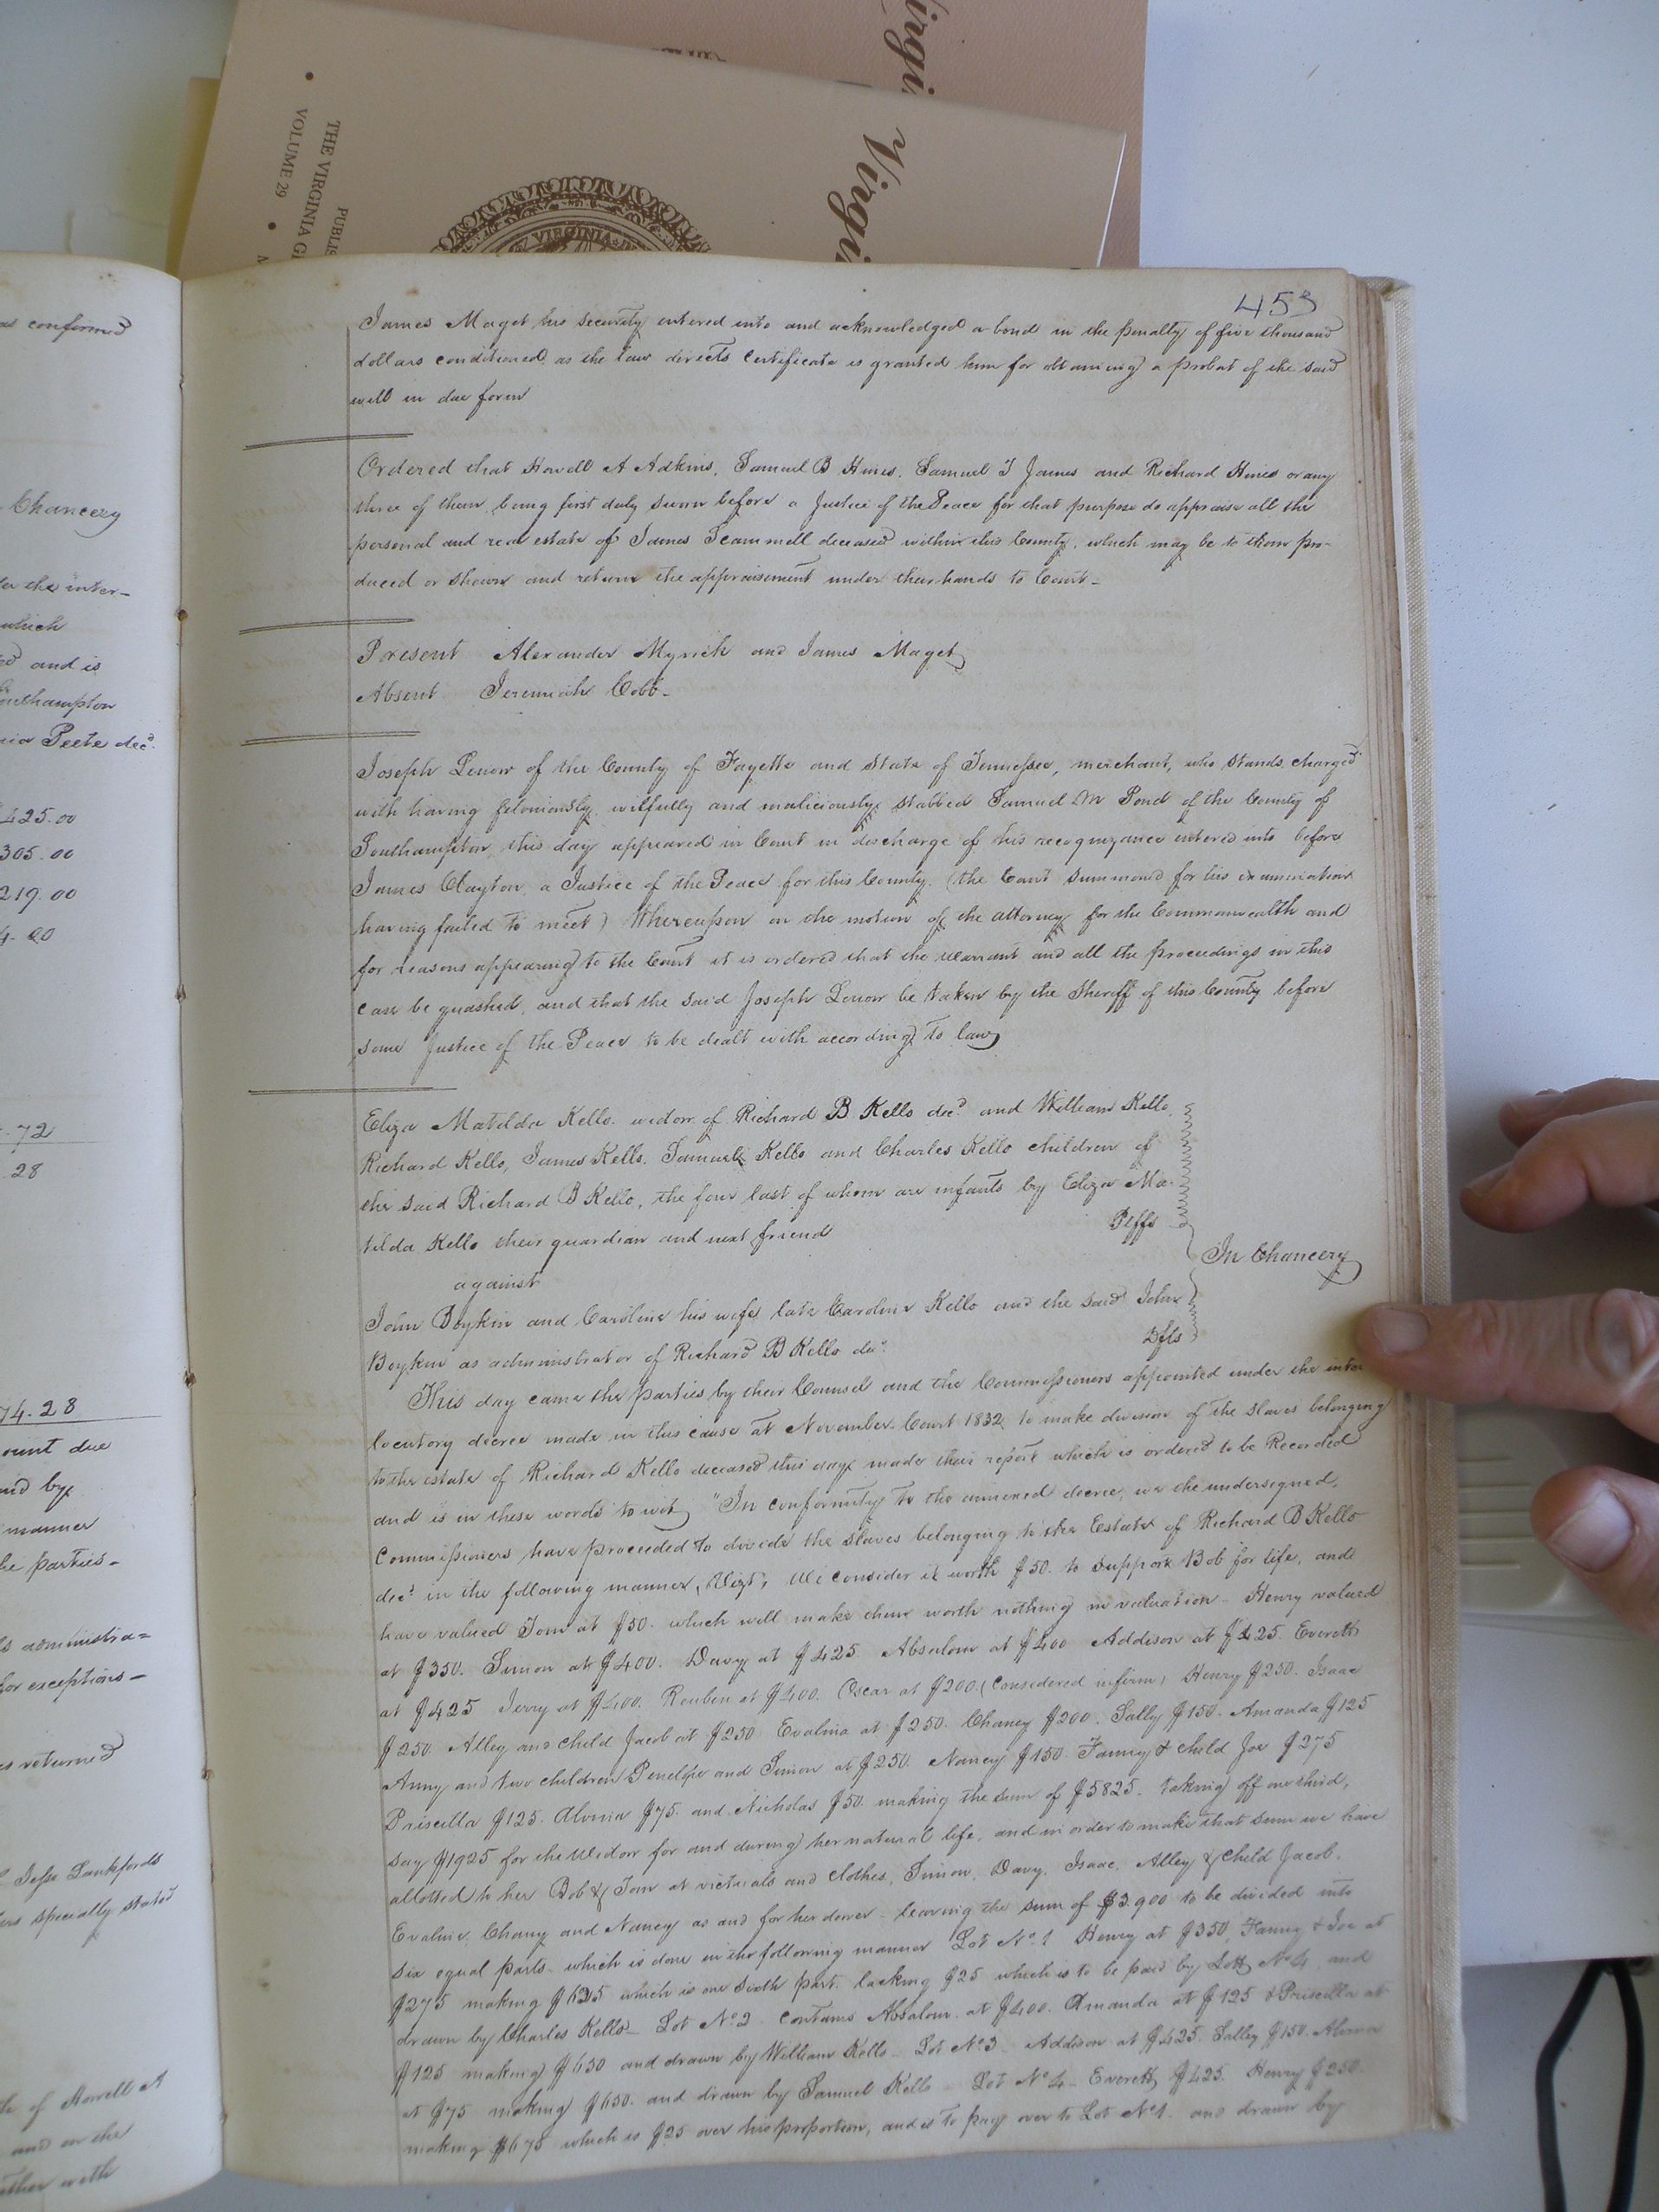 Virgi
Virgi
PUBLIS
THE VIRGINIA GE
VOLUME 29
VIRGINIA
453
James Maget his security entered into and acknowledged a bond in the penalty of five thousand
dollars conditioned as the law directs certificate is granted him for obtaining a probat of the said
will in due form
Ordered that Howell A Adkins, Samuel B Hines, Samuel T James and Richard Hines or any
three of them being first duly sworn before a Justice of the Peace for that purpose do appraise all the
personal and real estate of James Scammell deceased within this County, which may be to them pro-
duced or shewn and return the appraisement under their hands to Court -
Present Alexander Myrick and James Maget
Absent Jeremiah Cobb -
Joseph Lenow of the County of Fayette and State of Tennessee, merchant, who stands charged
with having feloniously wilfully and maliciously stabbed Samuel M Pond of the County of
Southampton, this day appeared in Court in discharge of his recognizance entered into before
James Clayton a Justice of the Peace for this County. (the Court summoned for his examination
having failed to meet) Whereupon on the motion of the attorney for the Commonwealth and
for reasons appearing to the Court it is ordered that the warrant and all the proceedings in this
case be quashed, and that the said Joseph Lenow be taken by the Sheriff of this County before
some Justice of the Peace to be dealt with according to law
Eliza Matilda Kello widow of Richard B Kello decd and William Kello
Richard Kello, James Kello, Samuel Kello and Charles Kello children of
the said Richard B Kello, the four last of whom are infants by Eliza Ma-
tilda Kello their guardian and next friend Plffs
In Chancery
against
John Boykin and Caroline his wife late Caroline Kello and the said John
Boykin as administrator of Richard B Kello decd Dfts
This day came the parties by their Counsel and the Commissioners appointed under the inter
locutory decree made in this cause at November Court 1832 to make division of the slaves belonging
to the estate of Richard Kello deceased this day made their report which is ordered to be Recorded
and is in these words to wit, "In conformity to the annexed decree, we the undersigned,
Commissioners have proceeded to divide the slaves belonging to the Estate of Richard B Kello
decd in the following manner, Vizt, We consider it worth $50. to support Bob for life, and
have valued Tom at $50. which will make them worth nothing in valuation - Henry valued
at $350. Simon at $400. Davy at $425 Absalom at $400 Addison at $425. Everett
at $425 Jerry at $400. Reuben at $400. Oscar at $200. (considered infirm) Henry $250. Isaac
$250 Alley and child Jacob at $250 Evalina at $250. Chaney $200. Sally $150. Amanda $125
Anny and two children Penelope and Simon at $250. Nancy $150. Fanny & child Joe $275
Priscilla $125. Alvinia $75. and Nicholas $50. making the sum of $5825. taking off one third,
say $1925 for the Widow for and during her natural life, and in order to make that sum we have
allotted to her Bob & Tom at victuals and clothes, Simon, Davy, Isaac, Alley & child Jacob,
Evalina, Chany and Nancy as and for her dower - leaving the sum of $3.900 to be divided into
six equal parts - which is done in the following manner Lot No. 1 Henry at $350, Fanny & Joe at
$275 making $625 which is one sixth part, lacking $25 which is to be paid by Lott No 4 and
drawn by Charles Kello - Lot No. 2 contains Absalom at $400. Amanda at $125 & Priscilla at
$125 making $650 and drawn by William Kello - Lot No 3 - Addison at $425. Salley $150. Alvinia
at $75 making $650. and drawn by Samuel Kello - Lot No 4 - Everett $425. Henry $250.
making $675 which is $25 over his proportion, and is to pay over to Lot No 1. and drawn by
as confirmed
Chancery
to the inter-
which
and is
Southampton
Peete decd.
425.00
305.00
219.00
.72
.28
74.28
ount due
and by
manner
he parties -
administra-
for exceptions -
es returned
Jesse Lankfords
specially stated
of Howell A
and on the
ether with